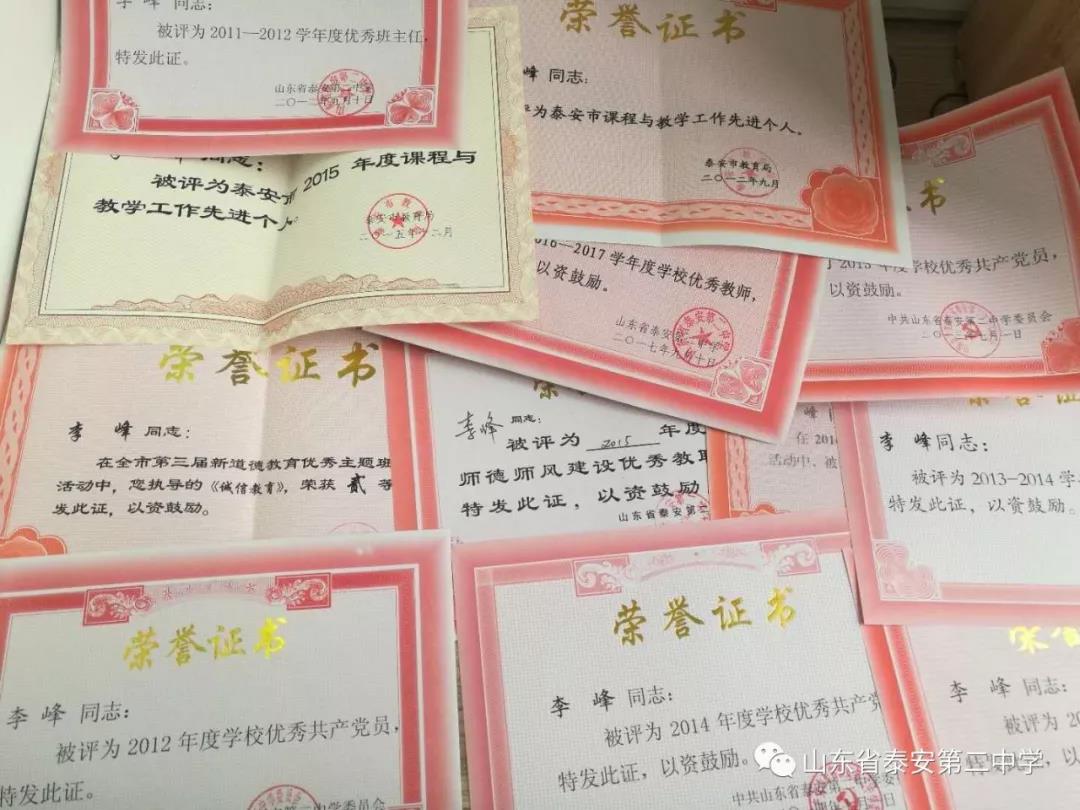 李 峰 同志:
被评为 2011—2012 学年度优秀班主任,
特发此证。
山东省泰安第二中学
二〇一二年九月十日
荣誉证书
峰 同志:
为泰安市课程与教学工作先进个人。
泰安市教育局
二〇一二年九月
同志:
被评为泰安市 2015 年度课程与
教学工作先进个人
泰安市教育局
二〇一五年十二月
2016—2017 学年度学校优秀教师,
以资鼓励。
山东省泰安第二中学
二〇一七年九月十日
书
年度学校优秀共产党员,
以资鼓励。
中共山东省泰安第二中学委员会
月一日
荣誉证书
李 峰 同志:
在全市第三届新道德教育优秀主题班
活动中, 您执导的《诚信教育》, 荣获 贰 等
发此证, 以资鼓励。
李峰 同志:
被评为 2015 年度
师德师风建设优秀教
特发此证, 以资鼓励
山东省泰安第二
峰
在 201
活动中、被
荣誉证
李 峰同志:
被评为 2013-2014 学
特发此证, 以资鼓励。
荣誉证书
李 峰 同志:
被评为 2012 年度学校优秀共产党员,
特发此证。
荣誉证书
李 峰 同志:
被评为 2014 年度学校优秀共产党
特发此证, 以资鼓励。
中共山东省泰安第二中学委
荣
李 峰 同志:
被评为 20
特发此证, 以
山东省泰安第二中学